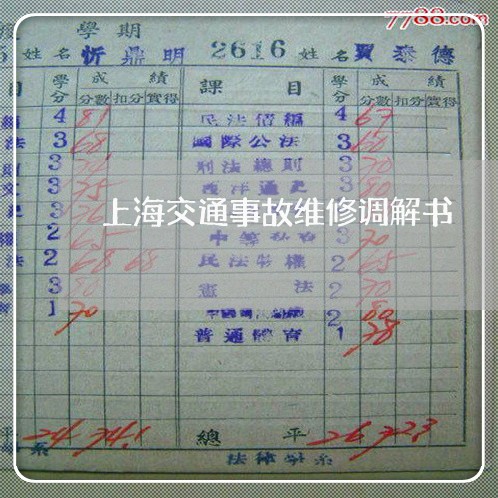 7788.com
學期
姓名 忻鼎明 2616 姓名 賈泰德
目 學分 成績 課目 學分 成績
分數 扣分 實得 分數 扣分 實得
4 81 民法債編 4 67
法 3 68 國際公法 3 60
3 刑法總則 3 70
3 75 西洋通史 3 80
上海交通事故维修调解书
2 65 3 70
法 2 68 68 民法物權 2 65
3 80 憲法 2 70
1 70 2 80
普通體育 1 78
平 24 74.1 總平 26 72.3
系 法律學系